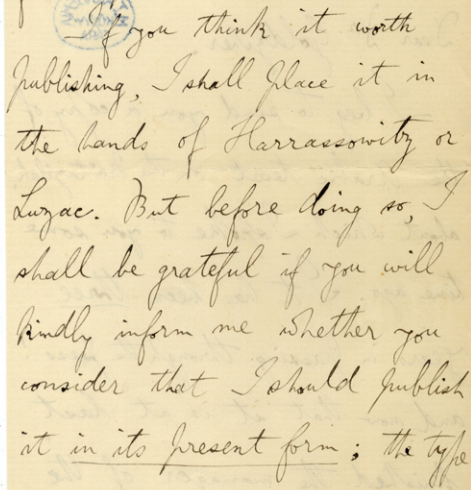 If you think it worth
publishing, I shall place it in
the hands of Harrassowitz or
Luzac. But before doing so, I
shall be grateful if you will
kindly inform me whether you
consider that I should publish
it in its present form; the type